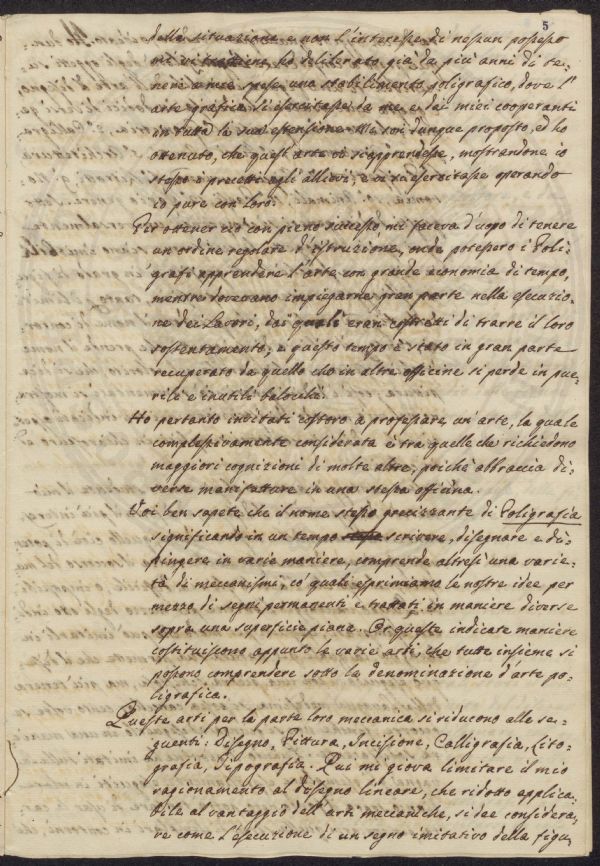 5
della situazione e non l'interesse di nessun possesso
mi vi trattiene, ho deliberato già da più anni di te-
nere a mie spese uno stabilimento poligrafico, dove l'
arte grafica si esercitasse da me e dai miei cooperanti
in tutta la sua estensione. Mi son dunque proposto, ed ho
ottenuto, che quest'arte vi si apprendesse, mostrandone io
stesso i precetti agli allievi, e vi si esercitasse operando
io pure con loro.
Per ottener ciò con pieno successo mi faceva d'uopo di tenere
un ordine regolare d'istruzione, onde potessero i Poli-
grafi apprendere l'arte con grande economia di tempo,
mentre dovevano impiegarne gran parte nella esecuzio-
ne dei Lavori, dai quali eran costretti di trarre il loro
sostentamento; e questo tempo è stato in gran parte
recuperato da quello che in altre officine si perde in pue-
rili e inutili balocchi.
Ho pertanto invitati costoro a professare un'arte, la quale
complessivamente considerata è tra quelle che richiedono
maggiori cognizioni di molte altre, poichè abbraccia di-
verse manifatture in una stessa officina.
Voi ben sapete che il nome stesso precizzante di Poligrafia
significando in un tempo scrivere, disegnare e di-
pingere in varie maniere, comprende altresì una varie-
tà di meccanismi, co' quali esprimiamo le nostre idee per
mezzo di segni permanenti e trattati in maniere diverse
sopra una superficie piana. Or queste indicate maniere
costituiscono appunto le varie arti, che tutte insieme si
possono comprendere sotto la denominazione d'arte po-
ligrafica.
Queste arti per la parte loro meccanica si riducono alle se-
guenti: Disegno, Pittura, Incisione, Calligrafia, Lito-
grafia, Tipografia. Qui mi giova limitare il mio
ragionamento al disegno lineare, che ridotto applica-
bile al vantaggio dell'arti meccaniche, si dee considera-
re come l'esecuzione di un segno imitativo della figu-